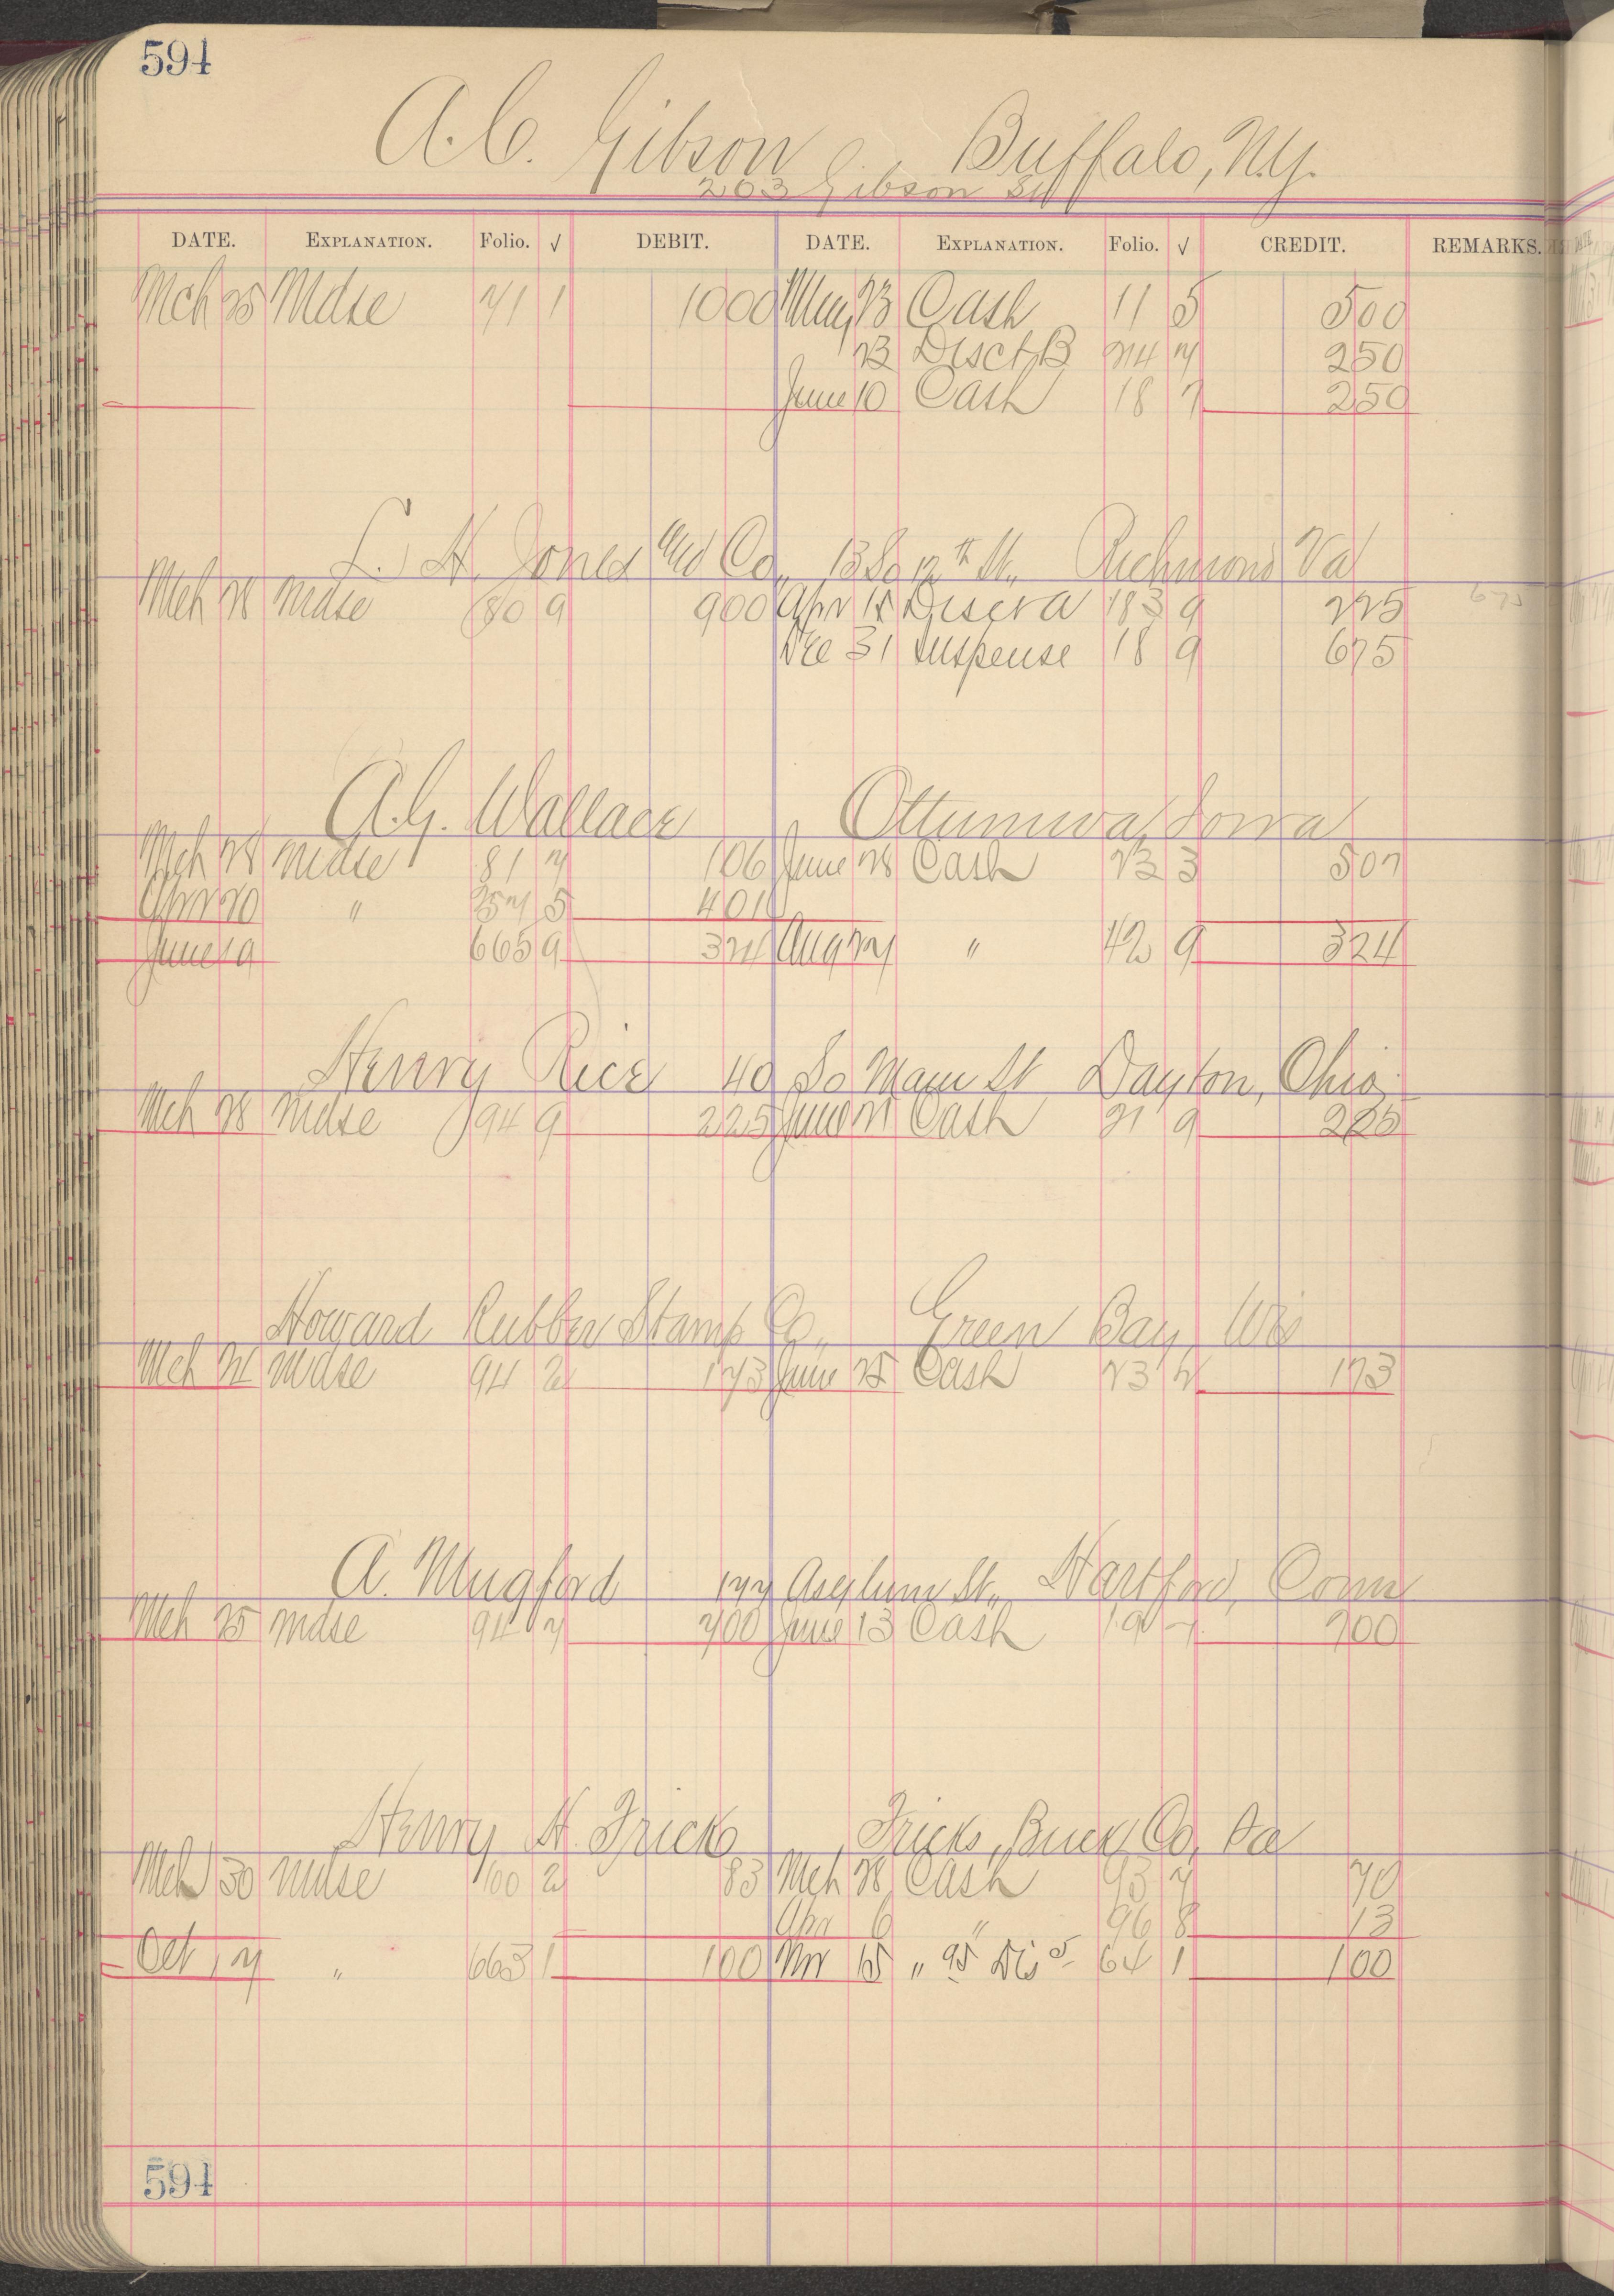 594
A.C. Gibson Buffalo, N.Y.
203 Gibson St
DATE. EXPLANATION. Folio. √ DEBIT. DATE. EXPLANATION. Folio. √ CREDIT. REMARKS.
Mch 25 Mdse 71 1 1000 May 23 Cash 11 5 500
23 Disct B 214 7 250
June 10 Cash 18 7 250
L. H. Jones Co., 13 So 12th St., Richmond Va
Mch 28 Mdse 80 9 900 Apr 18 Disct a 183 9 225 675
Dec 31 Suspense 18 9 675
A.G. Wallace Ottumwa, Iowa
Mch 28 Mdse 81 7 106 June 28 Cash 23 3 507
Apr 20 " 257 5 401
June 19 " 665 9 324 Aug 27 " 42 9 324
Henry Rice 40 So Main St Dayton, Ohio
Mch 28 Mdse 94 9 225 June 21 Cash 21 9 225
Howard Rubber Stamp Co., Green Bay, Wis
Mch 24 Mdse 94 2 173 June 25 Cash 23 2 173
A. Mugford 177 Asylum St., Hartford, Conn
Mch 25 Mdse 94 7 700 June 13 Cash 19 7 700
Henry H. Frick Fricks, Buck Co, Pa
Mch 30 Mdse 100 2 83 Mch 28 Cash 93 7 70
Apr 6 " 96 8 13
Oct 17 " 663 1 100 Nov 15 " 95 Dis 5 64 1 100
594